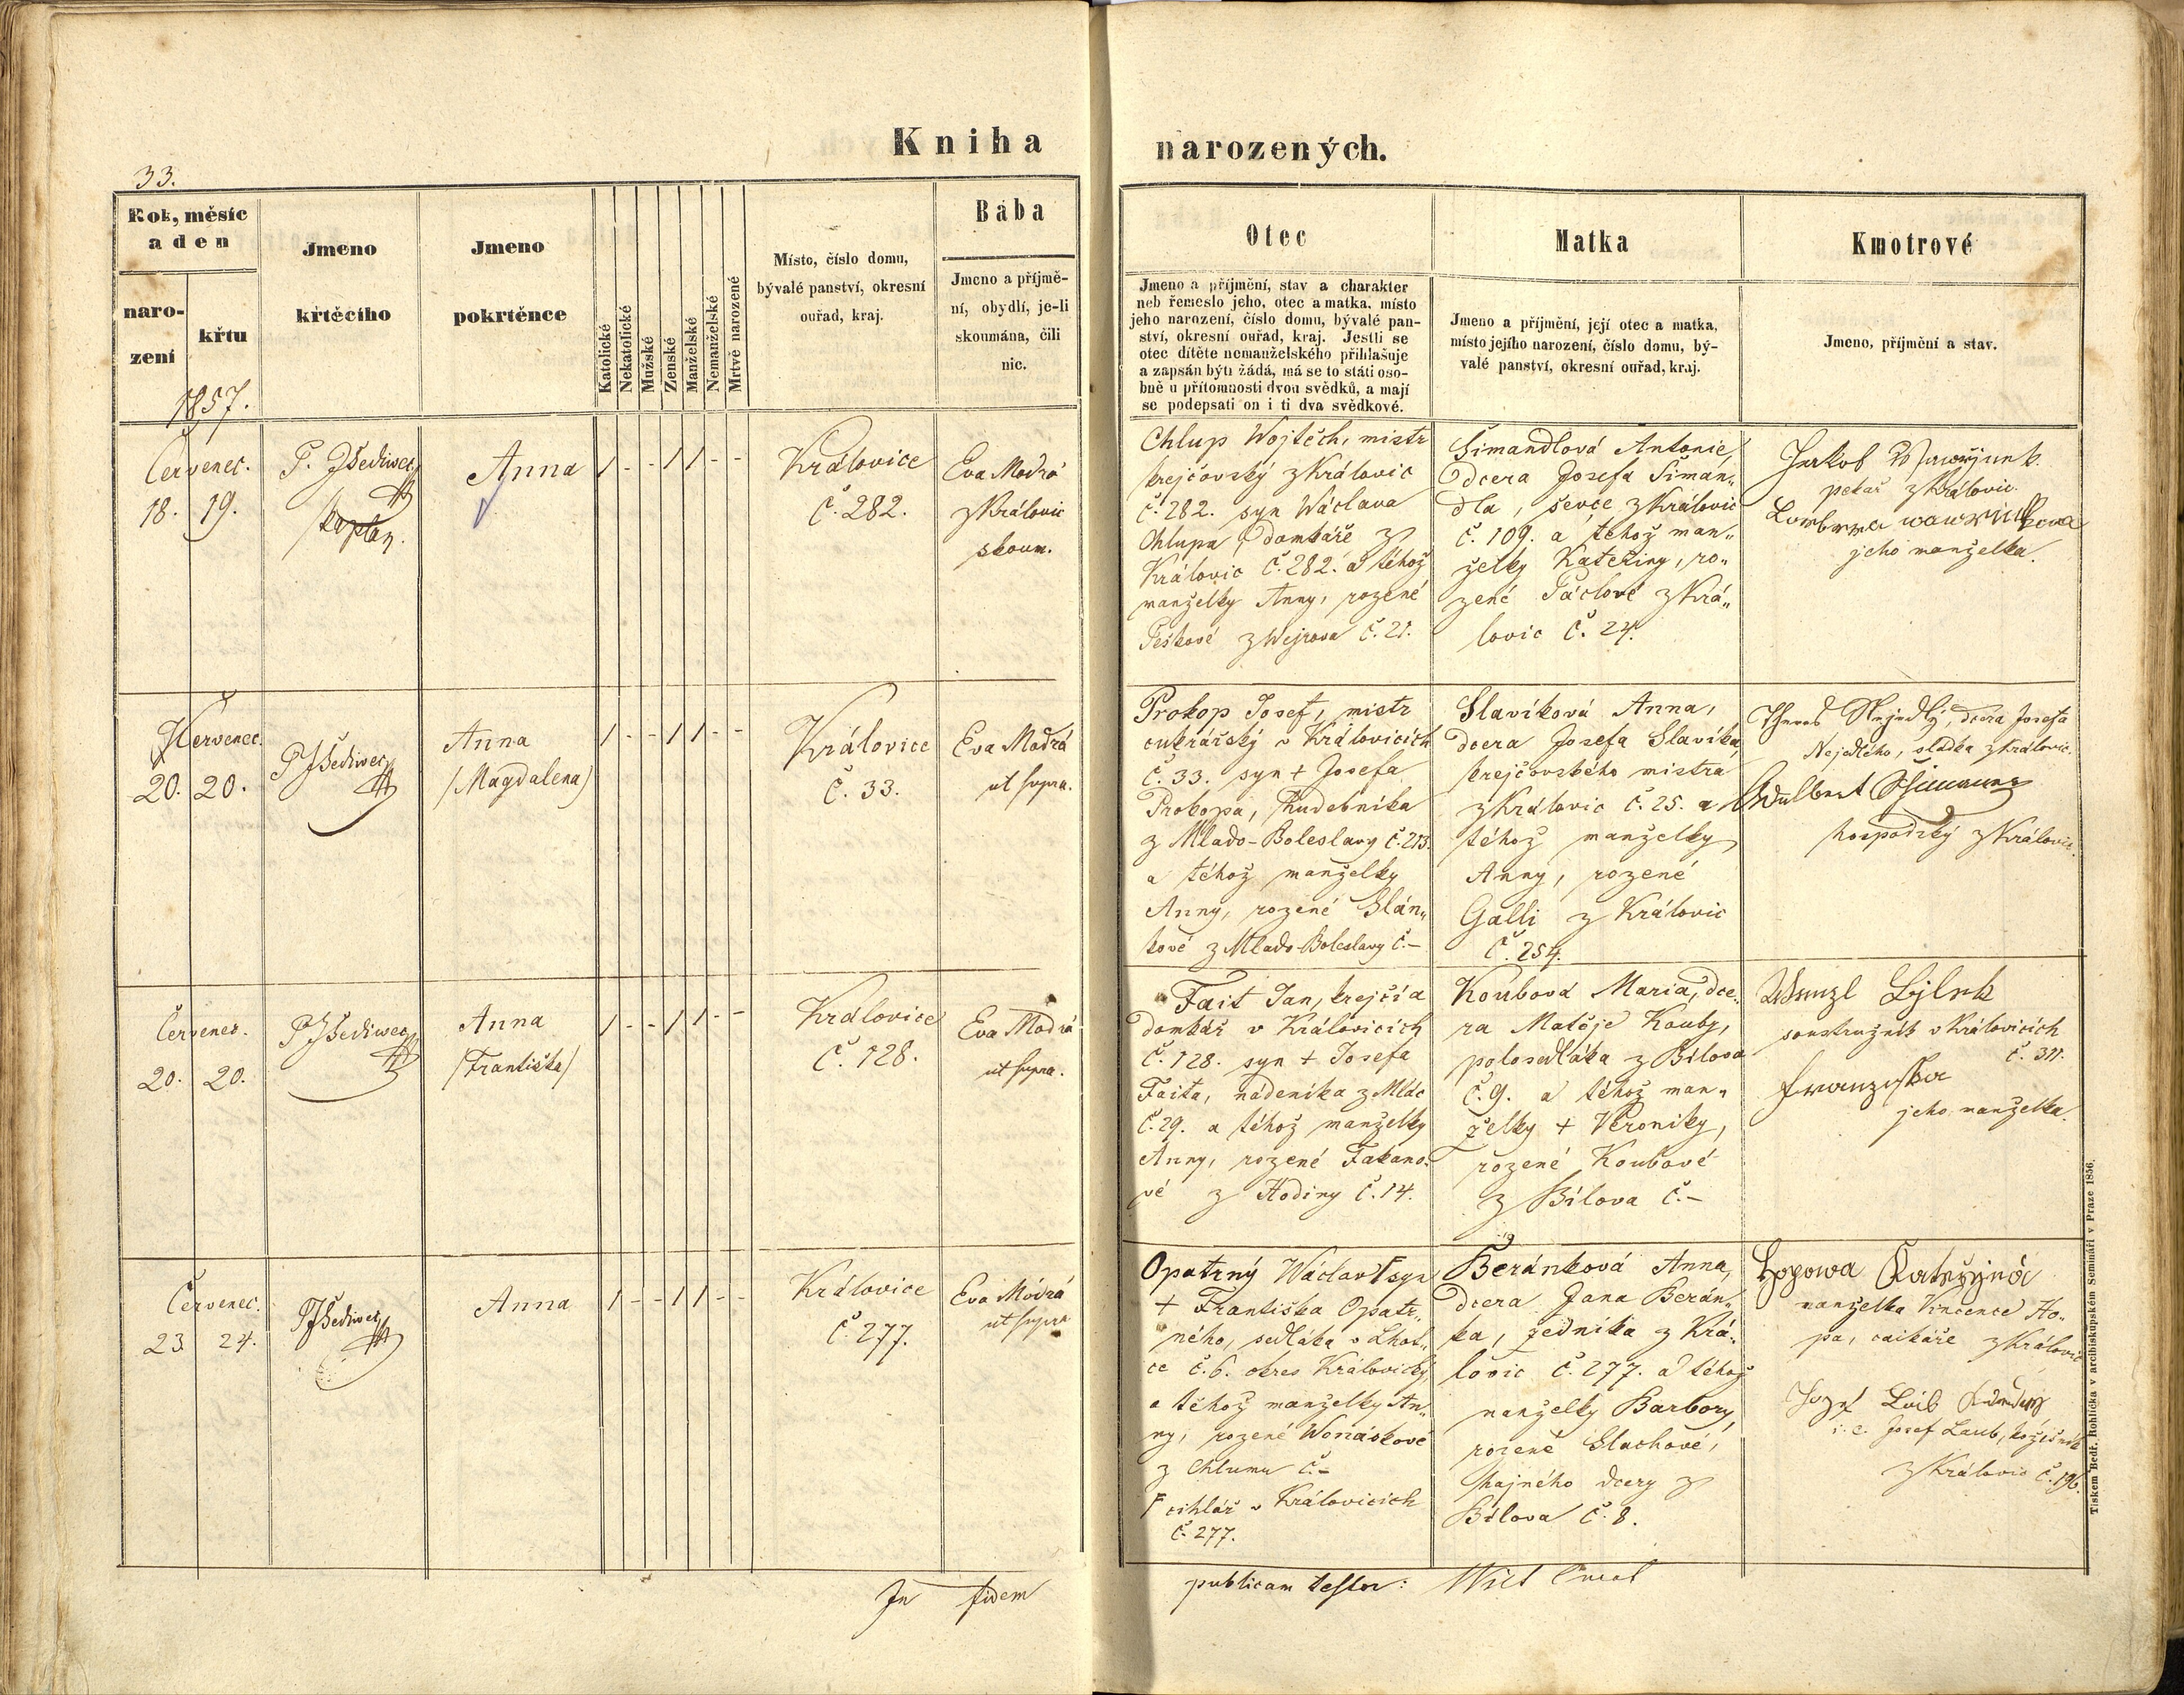 Kniha narozených.
33.
Rok, měsíc
a den
naro-
zení
křtu
Jmeno
křtěcího
Jmeno
pokrtěnce
Katolické
Nekatolické
Mužské
Zenské
Manželské
Nemanželské
Mrtvě narozené
Místo, číslo domu,
bývalé panství, okresní
ouřad, kraj.
Bába
Jmeno a příjmě-
ní, obydlí, je-li
skoumána, čili
nic.
Otec
Jmeno a příjmění, stav a charakter
neb řemeslo jeho, otec a matka, místo
jeho narození, číslo domu, bývalé pan-
ství, okresní ouřad, kraj. Jestli se
otec dítěte nemanželského přihlašuje
a zapsán býti žádá, má se to státi oso-
bně u přítomnosti dvou svědků, a mají
se podepsati on i ti dva svědkové.
Matka
Jmeno a příjmění, její otec a matka,
místo jejího narození, číslo domu, bý-
valé panství, okresní ouřad, kraj.
Kmotrové
Jmeno, příjmění a stav.
1857.
Červenec.
18. 19.
P. JŠediwec
kaplan.
Anna
/ - - / / - -
Královice
č. 282.
Eva Modrá
z Královic
skoum.
Chlup Wojtěch, mistr
krejčovský z Královic
č. 282. syn Wáclava
Chlupa, domkáře z
Královic č. 282. a téhož
manželky Anny, rozené
Peškové z Wejrova č. 21.
Šimandlová Antonie,
dcera Josefa Šiman„
dla, ševce z Královic
č. 109. a téhož man„
želky Kateřiny, ro„
zené Páclové z Krá„
lovic č. 24.
Jakob Wawřjnek
pekař z Královic
wawrinkowa
jeho manželka.
Červenec.
20. 20.
P JŠediwec
Anna
/Magdalena/
/ - - / / - -
Královice
č. 33.
Eva Modrá
ut supra.
Prokop Josef, mistr
cukrářský v Královicích
č. 33. syn + Josefa
Prokopa, hudebníka
z Mlado-Boleslavy č. 213.
a téhož manželky
Anny, rozené Slán„
kové z Mlado-Boleslavy č. –
Slavíková Anna,
dcera Josefa Slavíka,
krejčovského mistra
z Královic č. 25. a
téhož manželky
Anny, rozené
Galli z Královic
č. 254.
Nejedlý, dcera Josefa
Nejedlého, sládka z Královic.
Adalbert
hospodský z Královic.
Červenec.
20. 20.
P JŠediwec
Anna
/Františka/
/ - - / / - -
Královice
č. 128.
Eva Modrá
ut supra.
Fait Jan, krejčí a
domkář v Královicích
č. 128. syn + Josefa
Faita, nádeníka z Mlác
č. 29. a téhož manželky
Anny, rozené Fakano„
vé z Hodiny č. 14.
Koubová Maria, dce„
ra Matěje Kouby,
polosedláka z Bílova
č. 9. a téhož man„
želky + Veroniky,
rozené Koubové
z Bílova č. –
Wenzl Bjlek
soustružník v Královicích
č. 311.
Franziska
jeho manželka.
Červenec.
23. 24.
P JŠediwec
Anna
/ - - / / - -
Královice
č. 277.
Eva Módrá
ut supra
Opatrný Wáclav F syn
+ Františka Opatr„
ného, sedláka v Lhot„
ce č. 6. okres Královický,
a téhož manželky An„
ny, rozené Wonáskové
z Chlumu č. –
F cihlář v Královicích
č. 277.
Beránková Anna,
dcera Jana Berán„
ka, zedníka z Krá„
lovic č. 277. a téhož
manželky Barbory,
rozené Slachové,
hajného dcery z
Bílova č. 8.
Hopowa Kateřjná
manželka Vincence Ho„
pa, z Královic
Jozef
i. e. Josef Laub, kožešník
z Královic č. 196.
In fidem publicam testor:
Tiskem Bedř. Rohlíčka v arcibiskupském Semináři v Praze 1856.